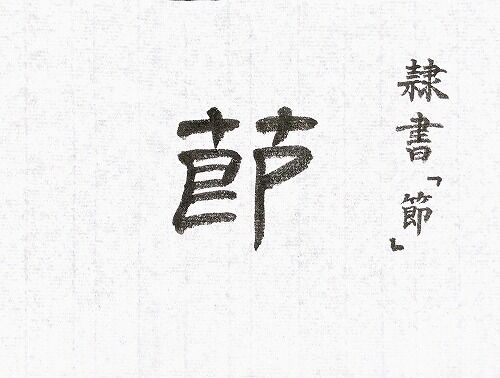 隷書「節」
節